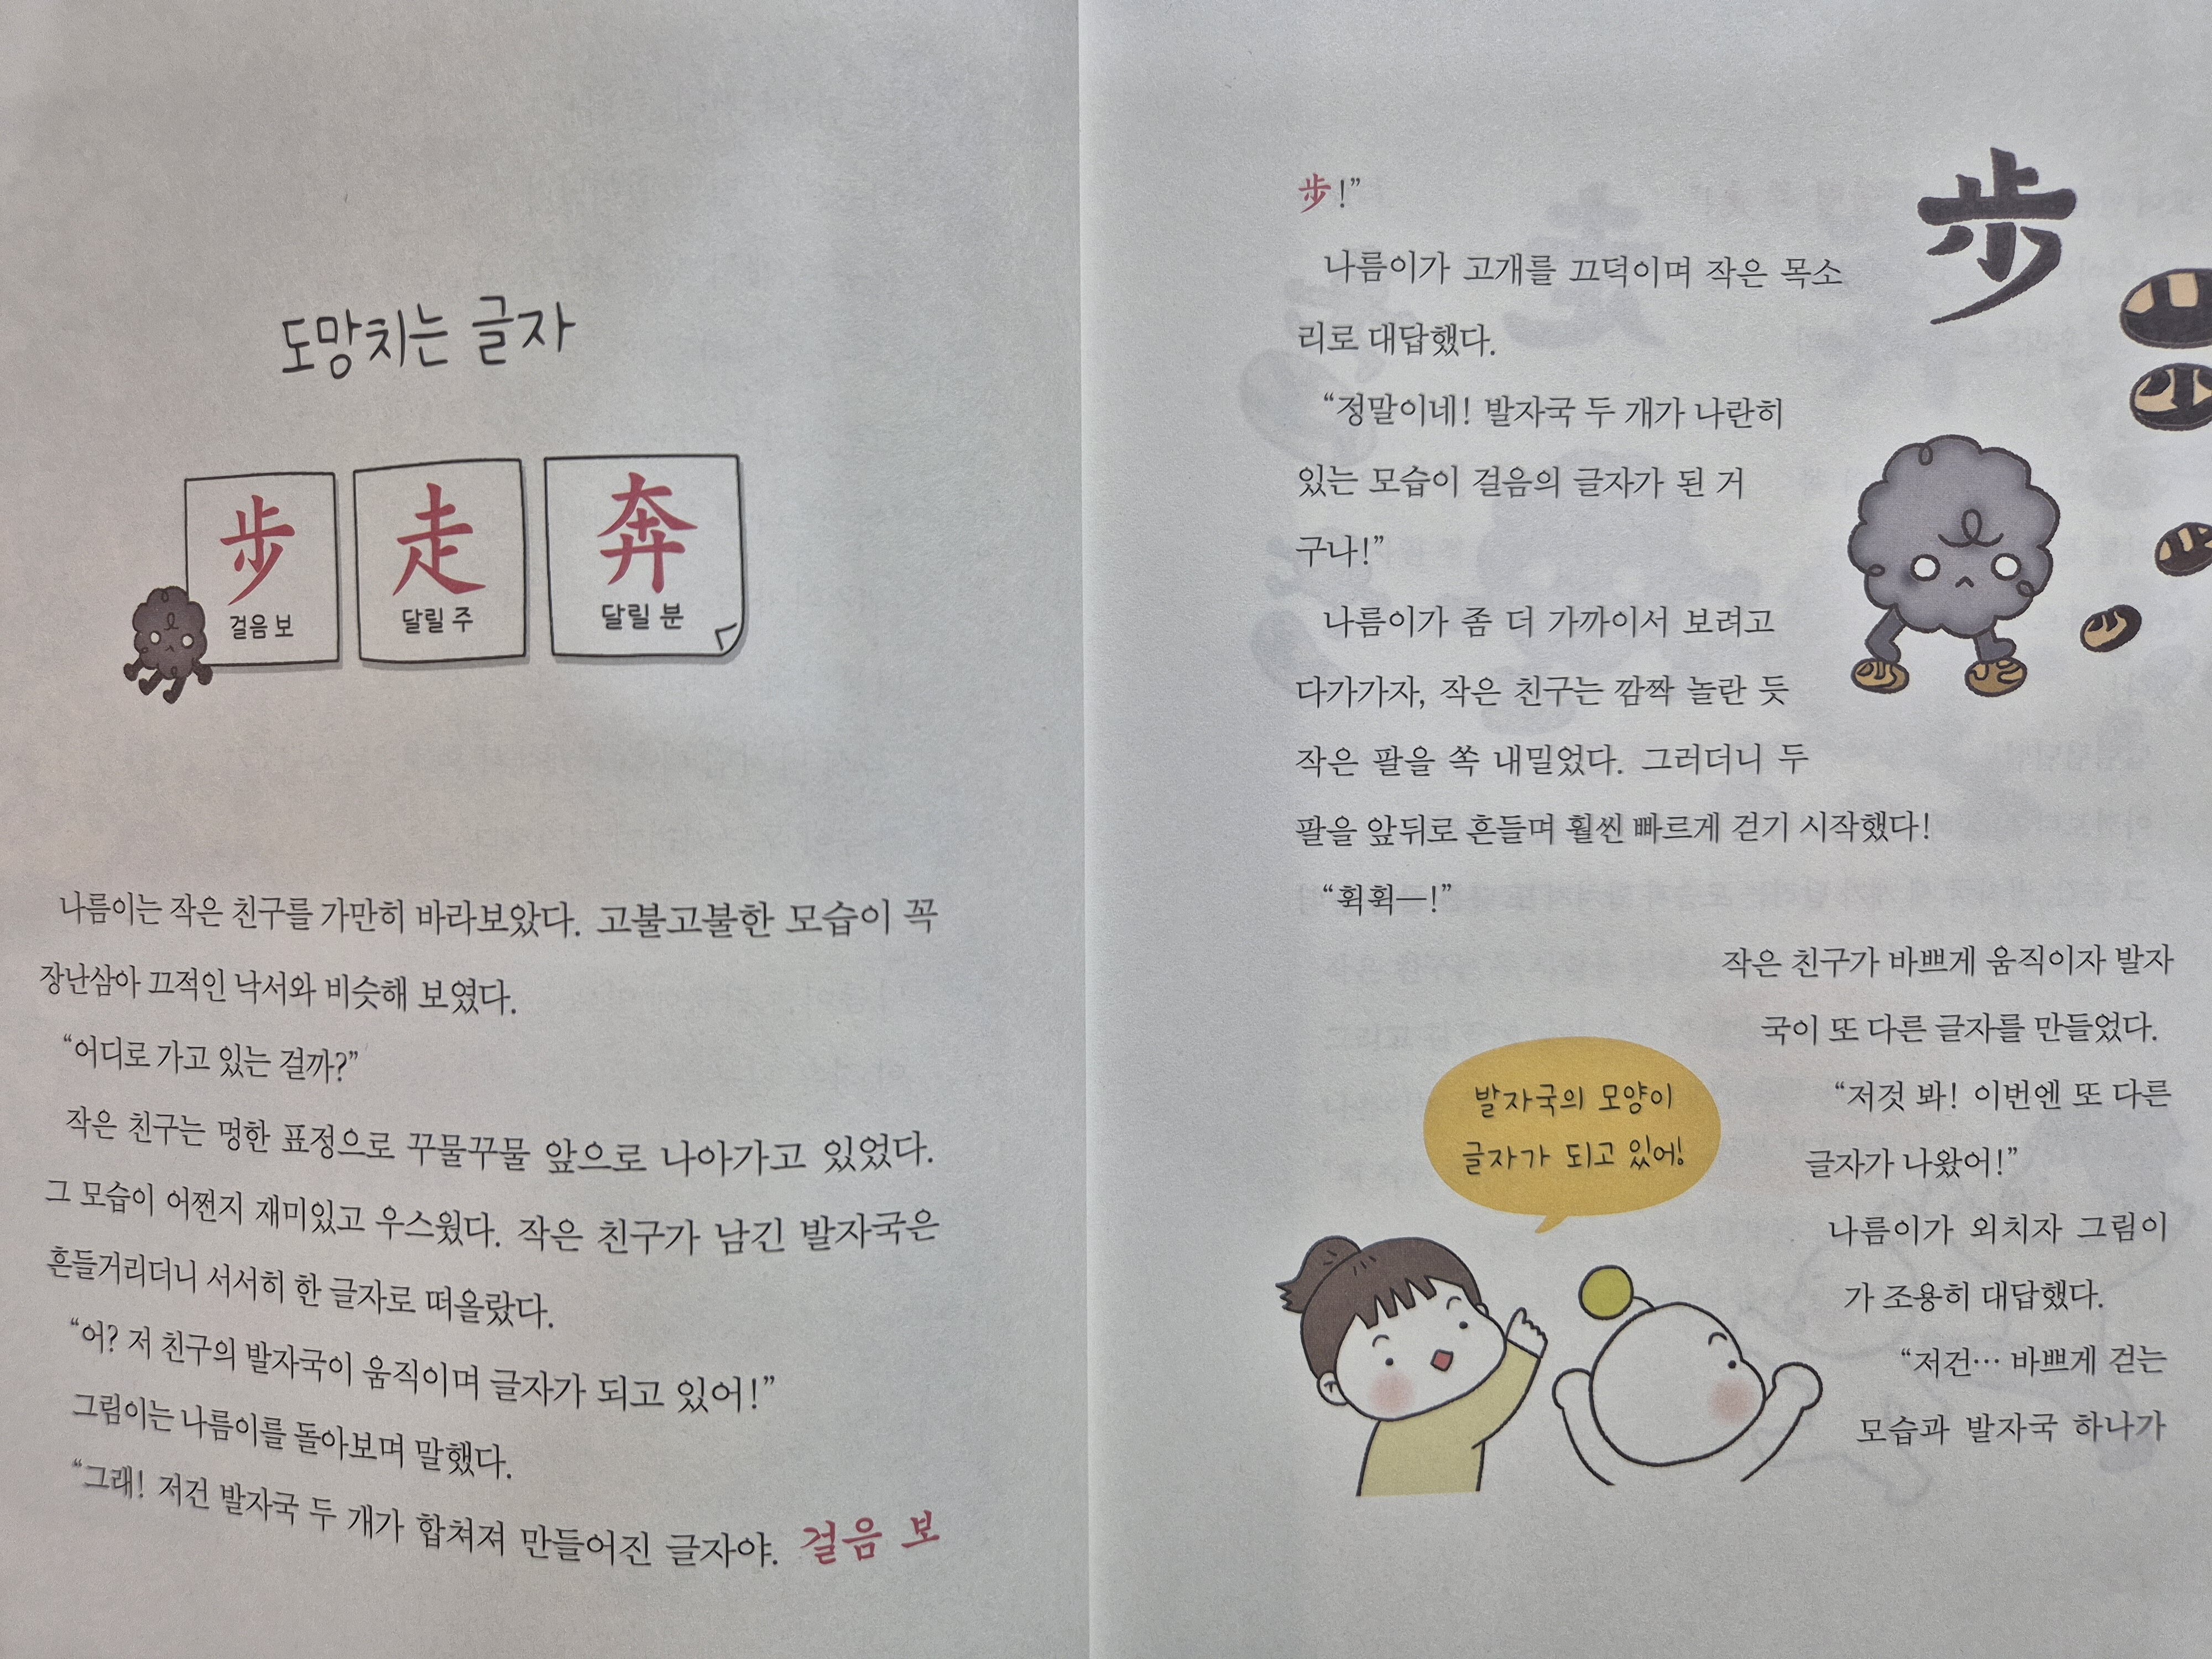 도망치는 글자
步
걸음 보
走
달릴 주
奔
달릴 분
나름이는 작은 친구를 가만히 바라보았다. 고불고불한 모습이 꼭
장난삼아 끄적인 낙서와 비슷해 보였다.
“어디로 가고 있는 걸까?”
작은 친구는 멍한 표정으로 꾸물꾸물 앞으로 나아가고 있었다.
그 모습이 어쩐지 재미있고 우스웠다. 작은 친구가 남긴 발자국은
흔들거리더니 서서히 한 글자로 떠올랐다.
“어? 저 친구의 발자국이 움직이며 글자가 되고 있어!”
그림이는 나름이를 돌아보며 말했다.
“그래! 저건 발자국 두 개가 합쳐져 만들어진 글자야. 걸음 보
步!”
나름이가 고개를 끄덕이며 작은 목소
리로 대답했다.
“정말이네! 발자국 두 개가 나란히
있는 모습이 걸음의 글자가 된 거
구나!”
나름이가 좀 더 가까이서 보려고
다가가자, 작은 친구는 깜짝 놀란 듯
작은 팔을 쏙 내밀었다. 그러더니 두
팔을 앞뒤로 흔들며 훨씬 빠르게 걷기 시작했다!
“휙휙—!”
步
작은 친구가 바쁘게 움직이자 발자
국이 또 다른 글자를 만들었다.
“저것 봐! 이번엔 또 다른
글자가 나왔어!”
나름이가 외치자 그림이
가 조용히 대답했다.
“저건… 바쁘게 걷는
모습과 발자국 하나가
발자국의 모양이
글자가 되고 있어!